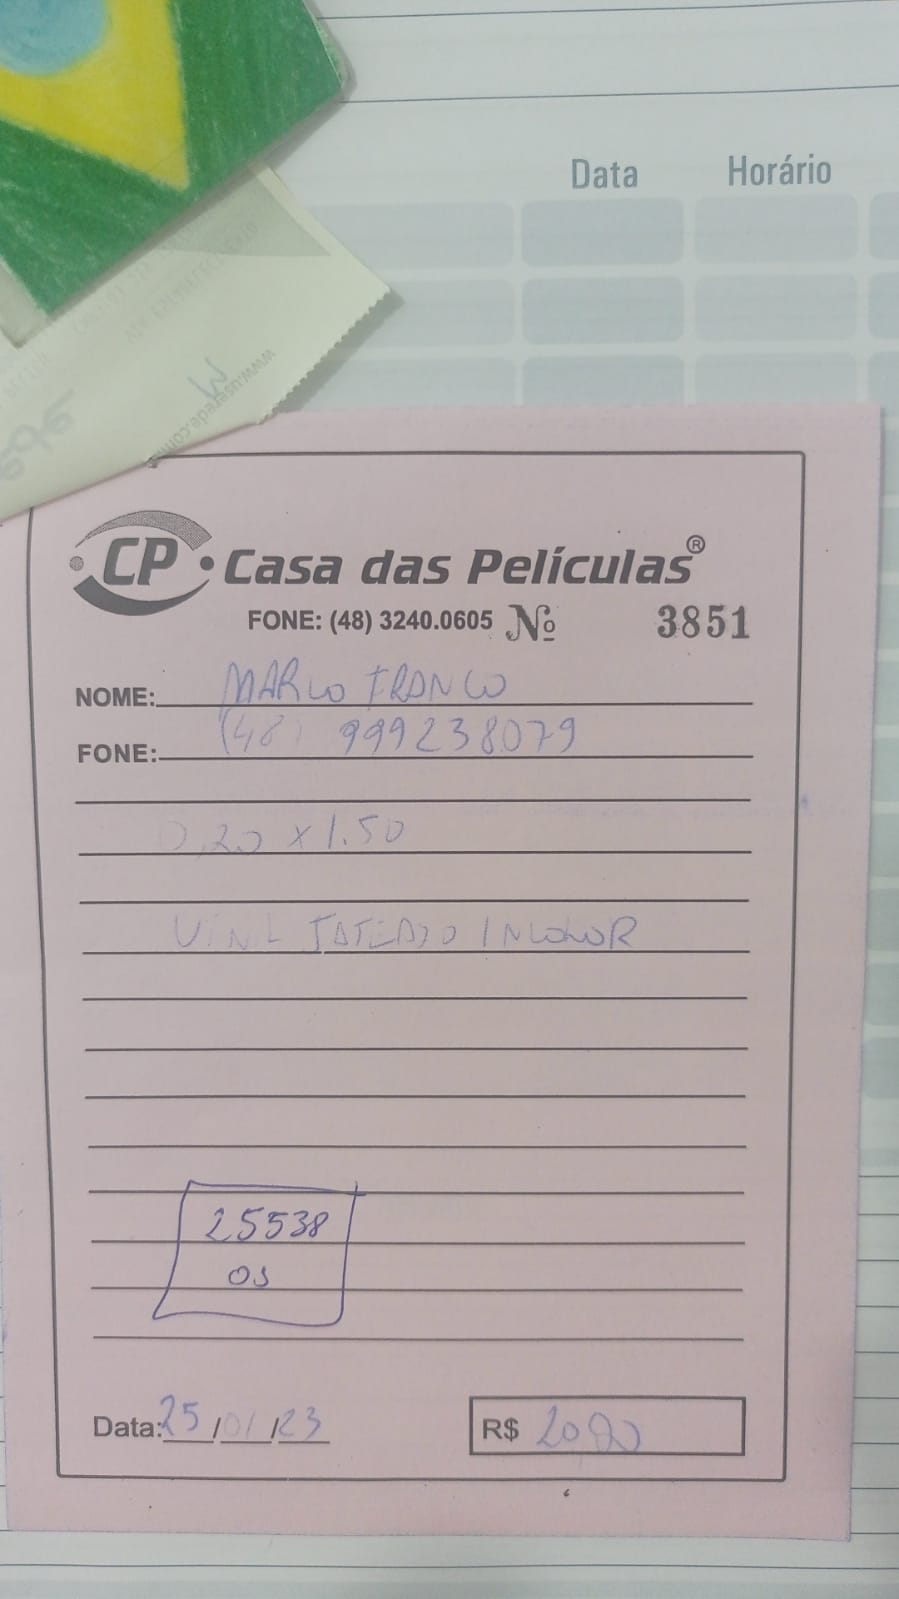 Data Horário
CP Casa das Películas®
FONE: (48) 3240.0605 Nº 3851
NOME: MARCO FRANCO
FONE: (48) 999238079
0,20 x 1.50
VINIL JATEADO INCOLOR
25538
OS
Data: 25/01/23
R$